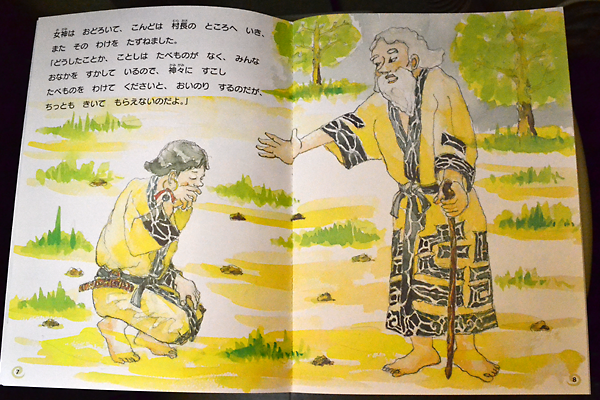 女神は おどろいて、こんどは 村長の ところへ いき、
また その わけを たずねました。
「どうしたことか、ことしは たべものが なく、みんな
おなかを すかして いるので、神々に すこし
たべものを わけて くださいと、おいのり するのだが、
ちっとも きいて もらえないのだよ。」
7
8